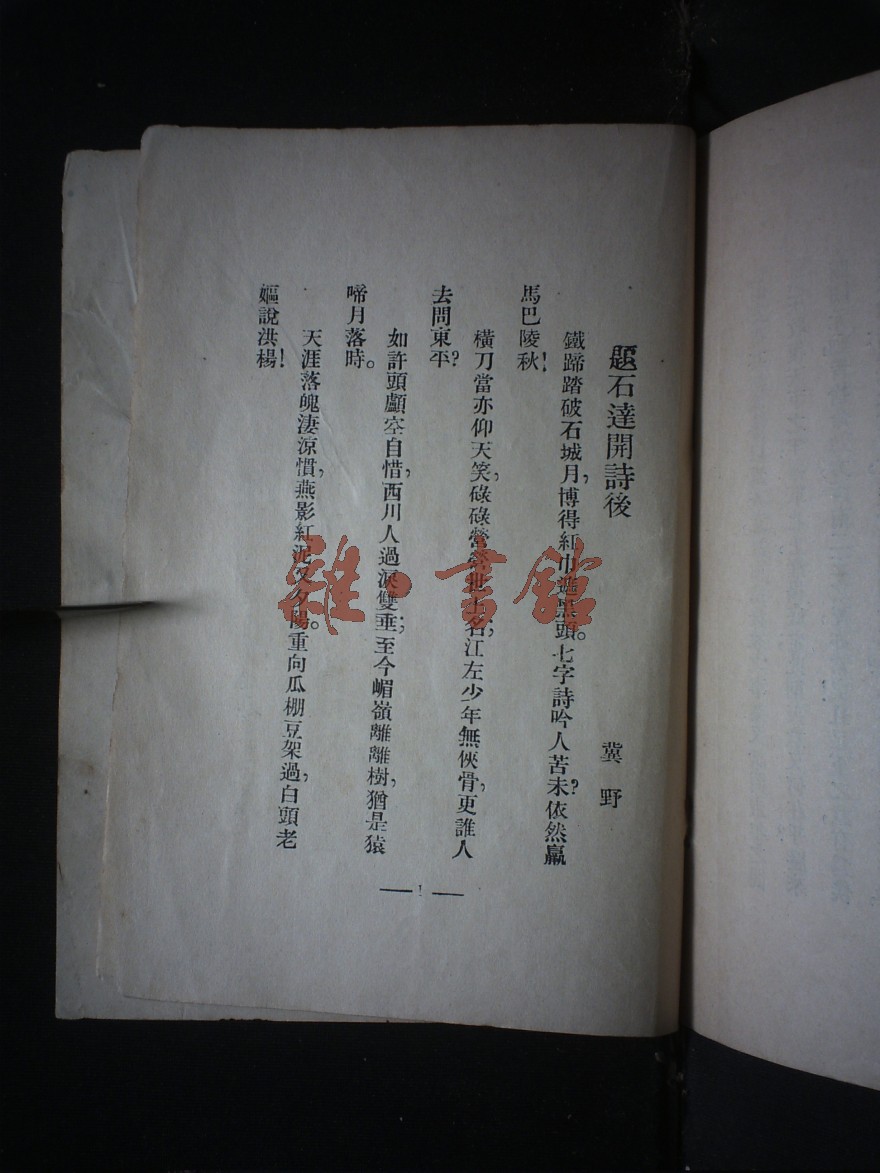 題石達開詩後
冀野
鐵蹄踏破石城月，博得紅巾蓋黑頭。七字詩吟人苦未？依然羸
馬巴陵秋！
橫刀當亦仰天笑，碌碌營營世上名；江左少年無俠骨，更誰人
去問東平？
如許頭顱空自惜，西川人過淚雙垂；至今嵋嶺離離樹，猶是猿
啼月落時。
天涯落魄淒涼慣，燕影紅泥又夕陽。重向瓜棚豆架過，白頭老
嫗說洪楊！
— 1 —
雜·書館